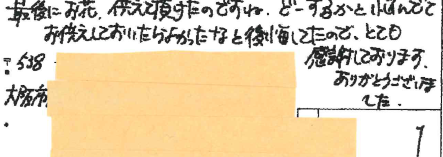 最後にお花、供えて頂けたのですね。どーするかと悩んでて
お供えしておいたらよかったなと後悔してたので、とても
感謝しております。
ありがとうございま
した。
〒538
大阪市
1